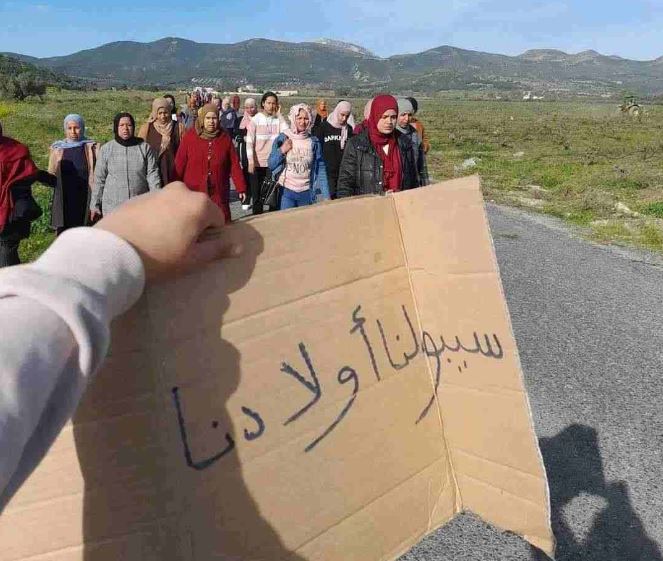 سيبولنا أولادنا